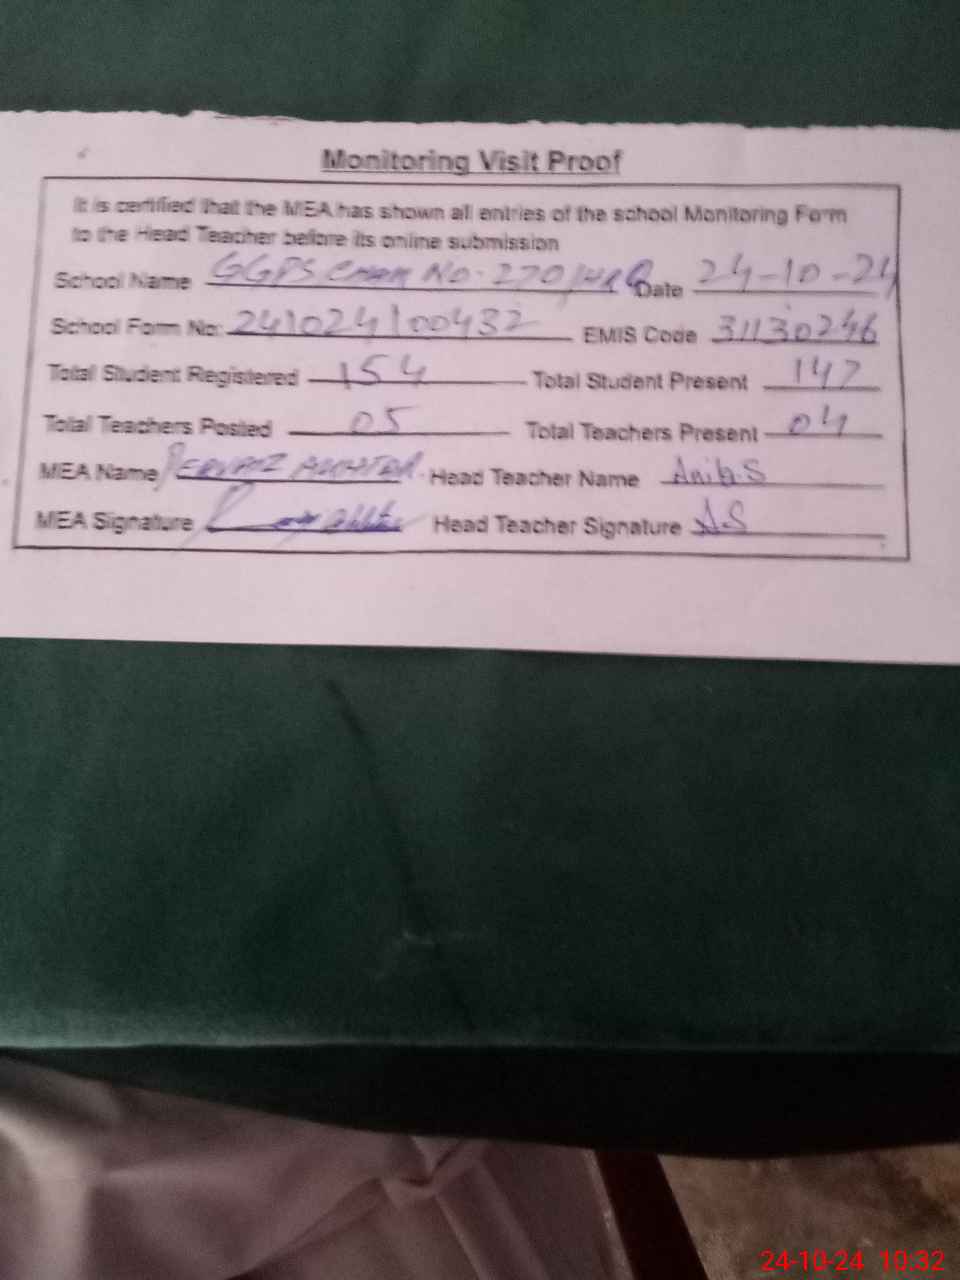 Monitoring Visit Proof
It is certified that the MEA has shown all entries of the school Monitoring Form
to the Head Teacher before its online submission
School Name GGPS Chak No. 270/HR Date 24-10-24
School Form No: 241024100432 EMIS Code 31130246
Total Student Registered 154 Total Student Present 147
Total Teachers Posted 05 Total Teachers Present 04
MEA Name PERVAIZ AKHTAR Head Teacher Name
MEA Signature Head Teacher Signature A.S
24-10-24 10:32